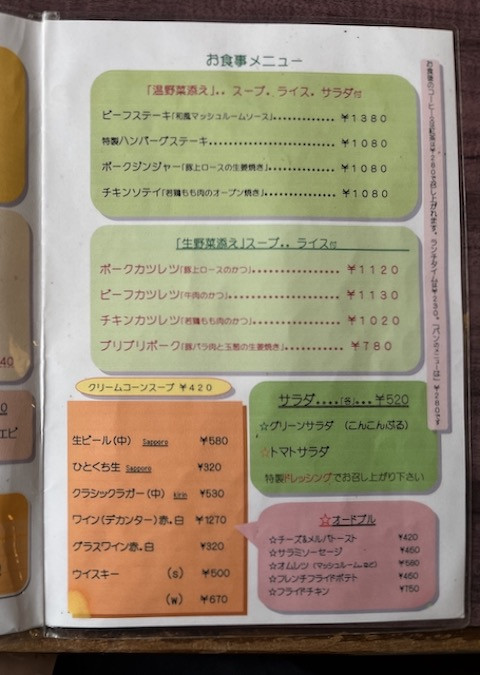 お食事メニュー
「温野菜添え」．．スープ．ライス．サラダ付
ビーフステーキ「和風マッシュルームソース」‥‥‥‥‥ ￥1380
特製ハンバーグステーキ‥‥‥‥‥‥‥‥‥‥ ￥1080
ポークジンジャー「豚上ロースの生姜焼き」‥‥‥‥‥ ￥1080
チキンソテイ「若鶏もも肉のオーブン焼き」‥‥‥‥‥ ￥1080
「生野菜添え」スープ．．ライス付
ポークカツレツ「豚上ロースのかつ」‥‥‥‥‥‥ ￥1120
ビーフカツレツ「牛肉のかつ」‥‥‥‥‥‥‥‥ ￥1130
チキンカツレツ「若鶏もも肉のかつ」‥‥‥‥‥‥ ￥1020
プリプリポーク「豚バラ肉と玉葱の生姜焼き」‥‥‥‥ ￥780
クリームコーンスープ ￥420
生ビール（中） Sapporo ￥580
ひとくち生 Sapporo ￥320
クラシックラガー（中） kirin ￥530
ワイン（デカンター）赤．白 ￥1270
グラスワイン赤．白 ￥320
ウイスキー （s） ￥500
（w） ￥670
サラダ‥‥「各」‥．￥520
☆グリーンサラダ （こんこんぶる）
☆トマトサラダ
特製ドレッシングでお召し上がり下さい
☆オードブル
☆チーズ&メルバトースト ￥420
☆サラミソーセージ ￥460
☆オムレツ（マッシュルーム．など） ￥580
☆フレンチフライドポテト ￥460
☆フライドチキン ￥750
40
0
エビ